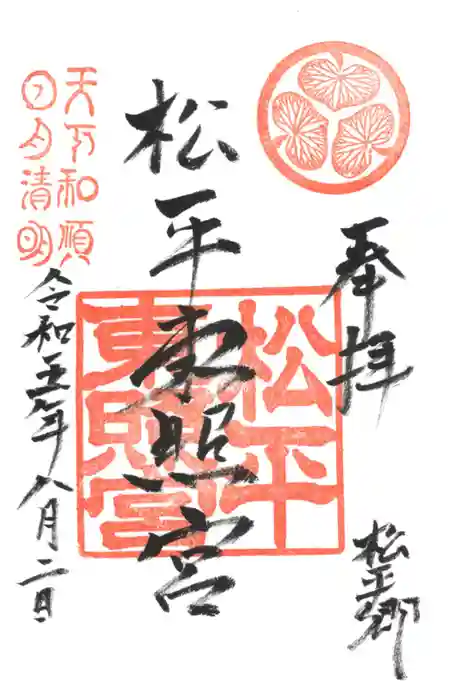 奉拝
松平郷
松平東照宮
松平
東照宮
天下和順
日月清明
令和五年八月二日